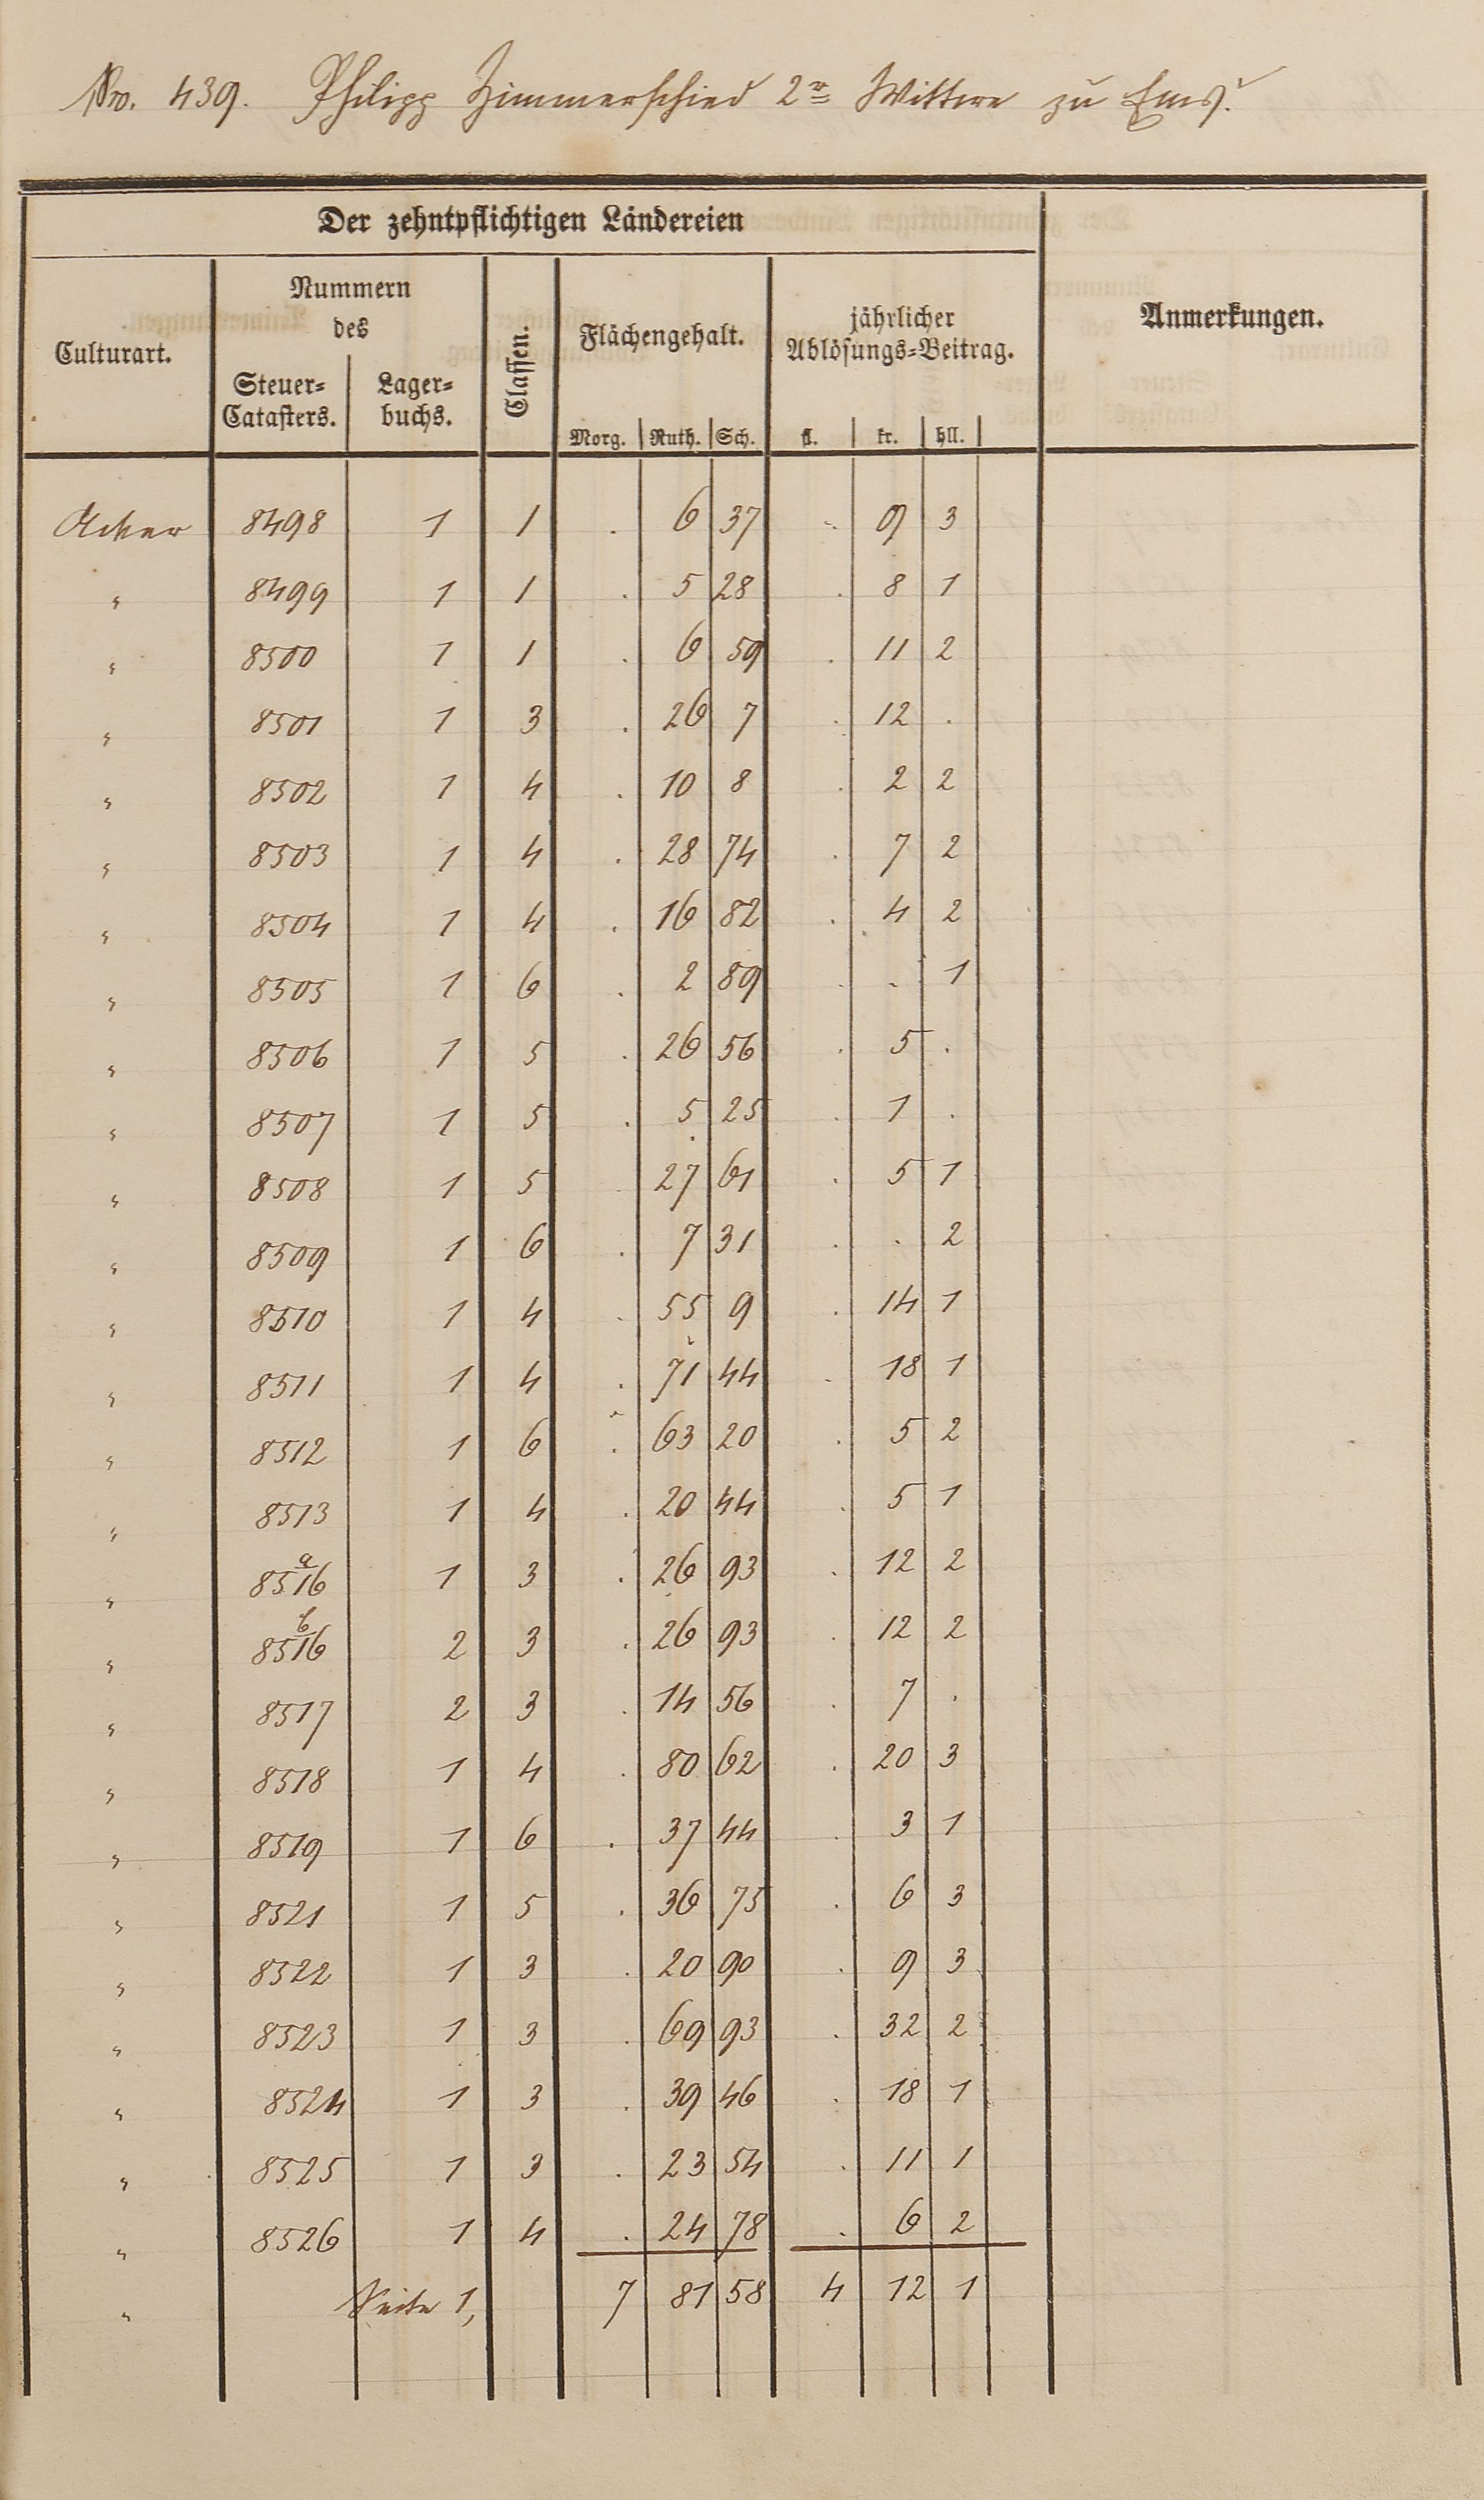 No. 439. Philipp Zimmerschied 2r Wittwe zu Ems.
Der zehntpflichtigen Ländereien
Culturart. Nummern des Steuer=Catasters. Lager=buchs. Classen. Flächengehalt. Morg. Ruth. Sch. jährlicher Ablösungs=Beitrag. fl. kr. hll. Anmerkungen.
Acker 8498 1 1 . 6 37 . 9 3
" 8499 1 1 . 5 28 . 8 1
" 8500 1 1 . 6 59 . 11 2
" 8501 1 3 . 26 7 . 12 .
" 8502 1 4 . 10 8 . 2 2
" 8503 1 4 . 28 74 . 7 2
" 8504 1 4 . 16 82 . 4 2
" 8505 1 6 . 2 89 . . 1
" 8506 1 5 . 26 56 . 5 .
" 8507 1 5 . 5 25 . 1 .
" 8508 1 5 . 27 61 . 5 1
" 8509 1 6 . 7 31 . . 2
" 8510 1 4 . 55 9 . 14 1
" 8511 1 4 . 71 44 . 18 1
" 8512 1 6 . 63 20 . 5 2
" 8513 1 4 . 20 44 . 5 1
" 8516 a 1 3 . 26 93 . 12 2
" 8516 b 2 3 . 26 93 . 12 2
" 8517 2 3 . 14 56 . 7 .
" 8518 1 4 . 80 62 . 20 3
" 8519 1 6 . 37 44 . 3 1
" 8521 1 5 . 36 75 . 6 3
" 8522 1 3 . 20 90 . 9 3
" 8523 1 3 . 69 93 . 32 2
" 8524 1 3 . 39 46 . 18 1
" 8525 1 3 . 23 54 . 11 1
" 8526 1 4 . 24 78 . 6 2
" Seite 1, 7 81 58 4 12 1